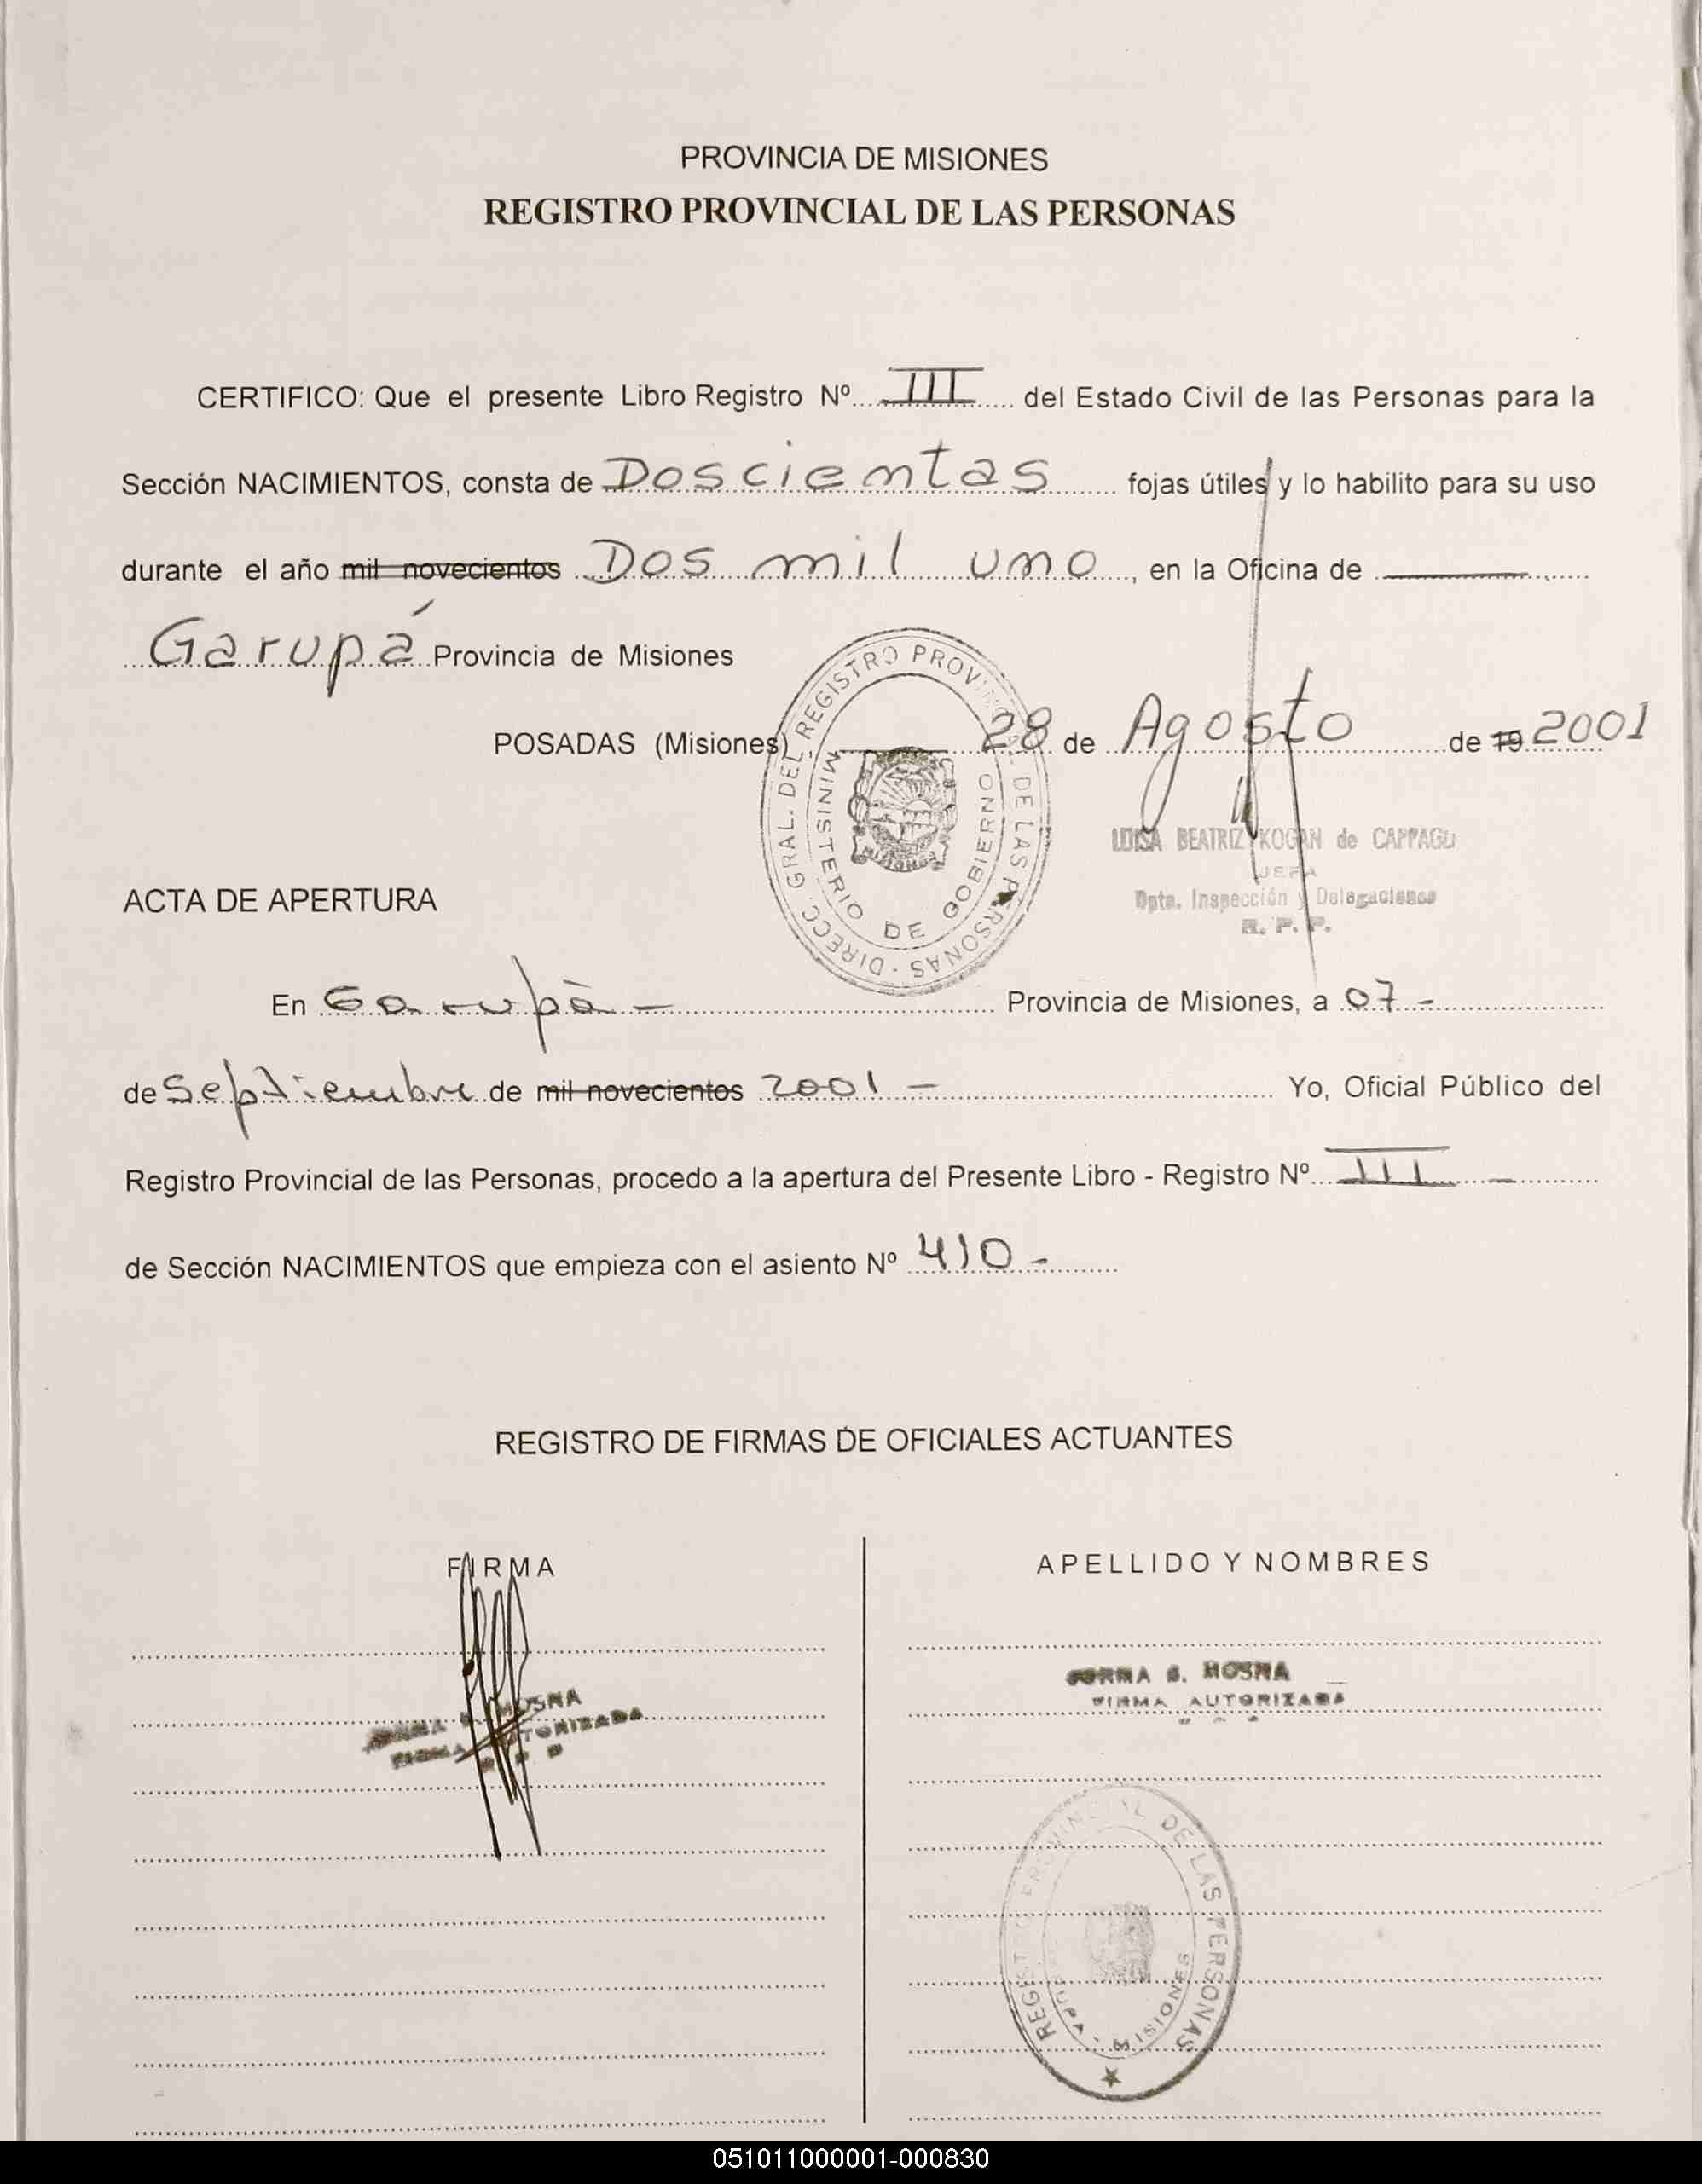 PROVINCIA DE MISIONES
REGISTRO PROVINCIAL DE LAS PERSONAS
CERTIFICO: Que el presente Libro Registro Nº III del Estado Civil de las Personas para la
Sección NACIMIENTOS, consta de Doscientas fojas útiles y lo habilito para su uso
durante el año mil novecientos Dos mil uno, en la Oficina de
Garupá Provincia de Misiones
POSADAS (Misiones) 28 de Agosto de 19 2001
DIRECC. GRAL. DEL REGISTRO PROVINCIAL DE LAS PERSONAS
MINISTERIO DE GOBIERNO
LUISA BEATRIZ KOGAN de
JEFA
Dpto. Inspección y Delegaciones
R. P. P.
ACTA DE APERTURA
En Garupà - Provincia de Misiones, a 07 -
de Septiembre de mil novecientos 2001 - Yo, Oficial Público del
Registro Provincial de las Personas, procedo a la apertura del Presente Libro - Registro Nº III -
de Sección NACIMIENTOS que empieza con el asiento Nº 410 -
REGISTRO DE FIRMAS DE OFICIALES ACTUANTES
FIRMA
APELLIDO Y NOMBRES
MOSNA
FIRMA AUTORIZADA
MOSNA
FIRMA AUTORIZADA
REGISTRO PROVINCIAL DE LAS PERSONAS
MISIONES
051011000001-000830